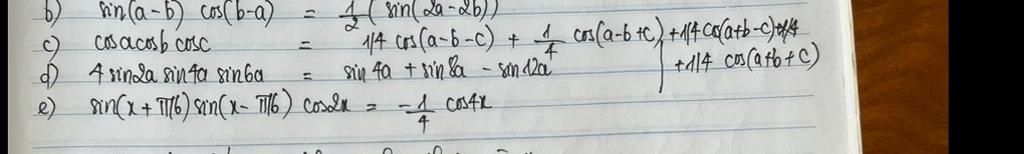 b) sin(a-b) cos(b-a) = 1/2 (sin(2a-2b))
c) cosacosb cosc = 1/4 cos(a-b-c) + 1/4 cos(a-b+c) +1/4 cos(a+b-c)
+1/4 cos(a+b+c)
d) 4 sin2a sin4a sin6a = sin 4a + sin 8a - sin 12a
e) sin(x + π/6) sin(x - π/6) cos2x = -1/4 cos4x